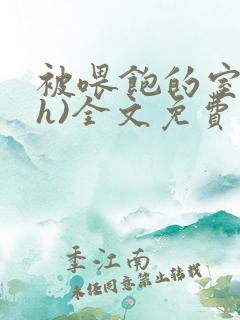 被喂饱的室
h)全文免費
季江南
未经同意禁止转载